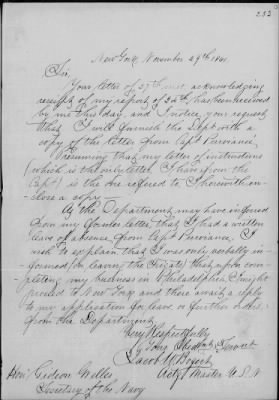 253
New York, November 29th 1861
Sir,
Your letter of 27th inst, acknowledging
receipt of my report of 26th, has been received
by me this day, and I notice your request
that I will furnish the Dept with a
copy of the letter from Capt Purviance.
Presuming that my letter of instructions
(which is the only letter I have from the
Capt) is the one referred to I herewith en-
close a copy—
As the Department may have inferred
from my former letter, that I had a written
leave of absence from Capt Purviance, I
wish to explain that I was only verbally in-
formed (on leaving the frigate) that upon com-
pleting my business in Philadelphia I might
proceed to New York and there await a reply
to my application for leave or further orders
from the Department
Very Respectfully
Your Obedt Servant
Jacob M
Actg Master U.S.N
Hon. Gideon Welles
Secretary of the Navy